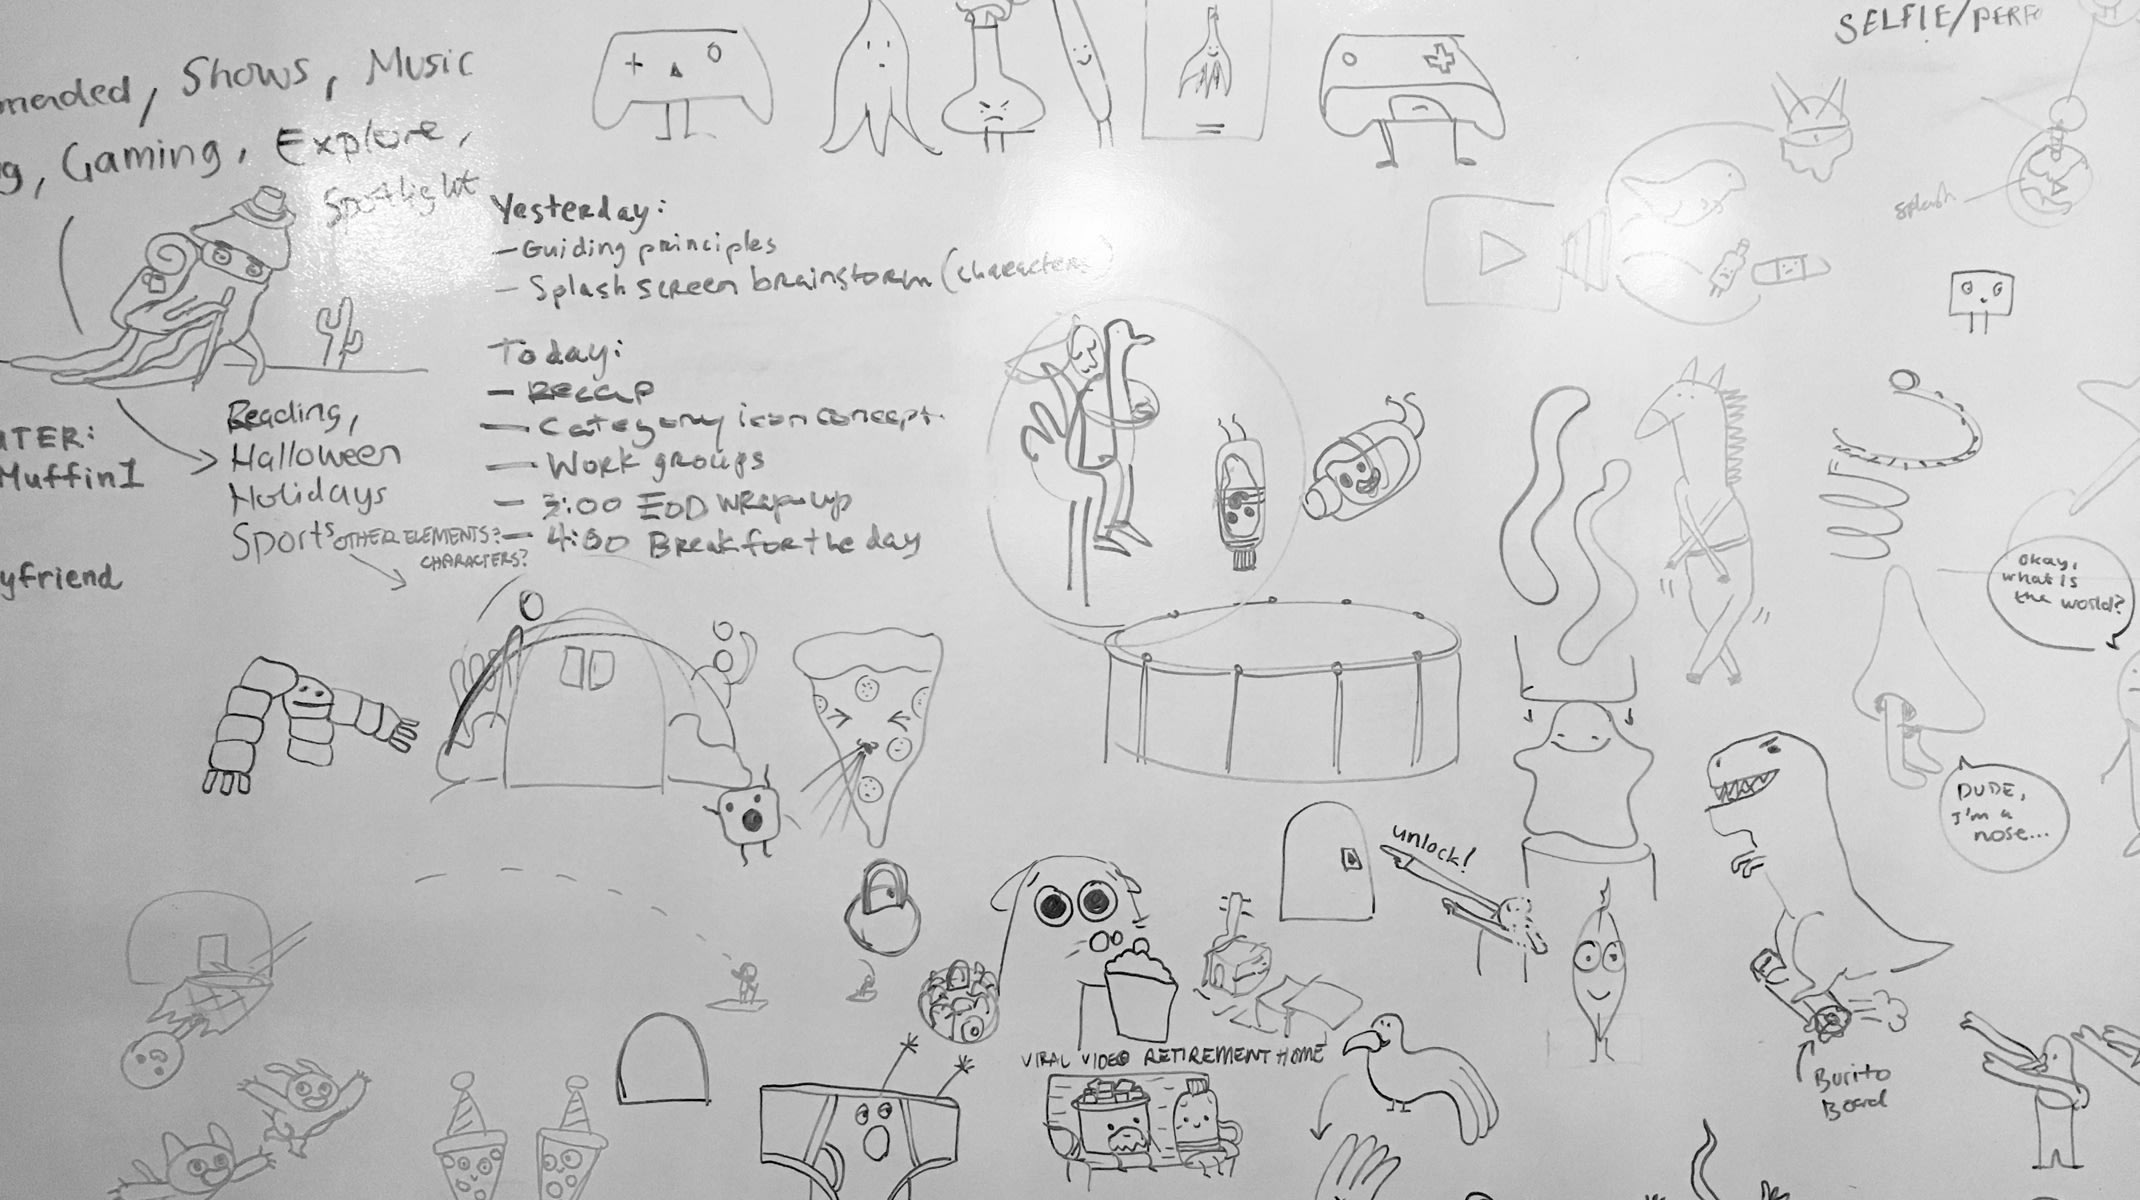 Shows, Music
Gaming, Explore,
Spotlight
SELFIE/PERF
splash
Yesterday:
- Guiding principles
- Splash screen brainstorm (characters)
Today:
- Recap
- Category icon concept.
- Work groups
- 3:00 EOD wrap-up
- 4:00 Break for the day
Reading,
Halloween
Holidays
Sports
OTHER ELEMENTS?
CHARACTERS?
ATER:
Muffin1
yfriend
okay,
what is
the world?
DUDE,
I'm a
nose...
unlock!
VIRAL VIDEO RETIREMENT HOME
Burito
Board